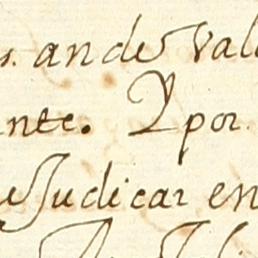 s. an de Val
nte. Y por
e Judicar en